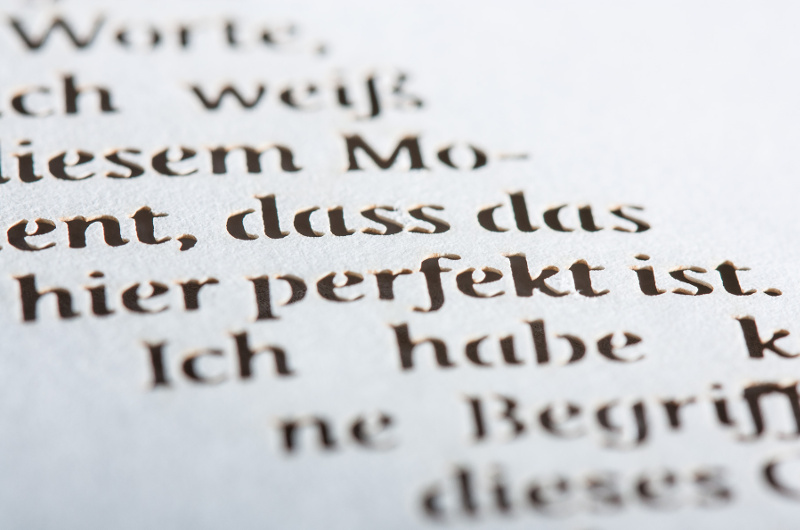 Worte,
ch weiß
diesem Mo-
ent, dass das
hier perfekt ist.
Ich habe k
ne Begriff
dieses G